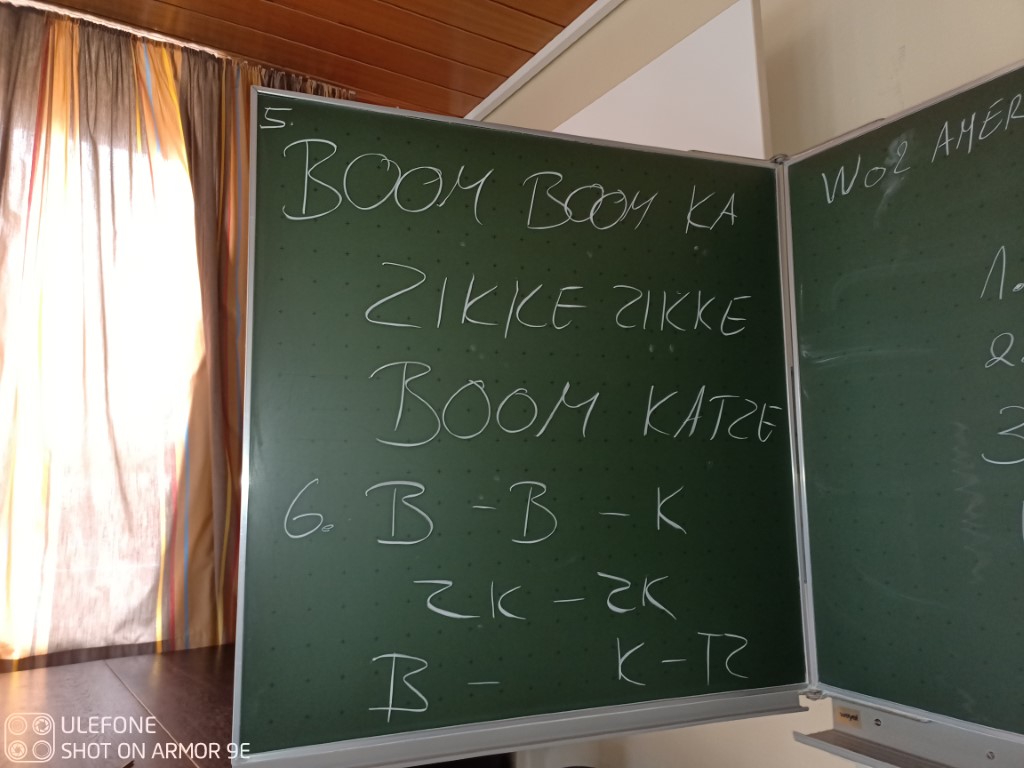 5.
BOOM BOOM KA
ZIKKE ZIKKE
BOOM KATZE
6. B - B - K
ZK - ZK
B - K - TZ
WO2 AMER
1.
2.
3
ULEFONE
SHOT ON ARMOR 9E